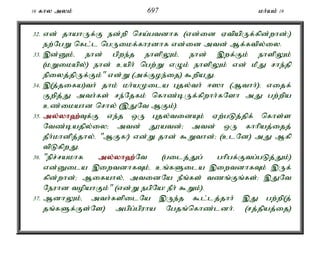 16 கால அலம் 697 மர்யம் 19
32. என் தாயாருக்கு நன்றி செய்பவனாக (என்னை ஏவியிருக்கின்றான்;)
நற்பேறு கெட்ட பெருமைக்காரனாக என்னை அவன் ஆக்கவில்லை.
33. இன்னும், நான் பிறந்த நாளிலும், நான் இறக்கும் நாளிலும்
(மறுமையில்) நான் உயிர் பெற்று எழும் நாளிலும் என் மீது சாந்தி
நிலைத்திருக்கும்” என்று (அக்குழந்தை) கூறியது.
34. இ(த்தகைய)வர் தாம் மர்யமுடைய புதல்வர் ஈஸா (ஆவார்); எதைக்
குறித்து அவர்கள் சந்தேகம் கொண்டிருக்கிறார்களோ அது பற்றிய
உண்மையான சொல் (இதுவே ஆகும்).
35. அல்லாஹ்வுக்கு எந்த ஒரு புதல்வனையும் ஏற்படுத்திக் கொள்ள
வேண்டியதில்லை; அவன் தூயவன்; அவன் ஒரு காரியத்தைத்
தீர்மானித்தால், “ஆகுக!” என்று தான் கூறுவான்; (உடனே) அது ஆகி
விடுகிறது.
36. “நிச்சயமாக அல்லாஹ்வே (படைத்துப் பரிபக்குவப்படுத்தும்)
என்னுடைய இறைவனாகவும், உங்களுடைய இறைவனாகவும் இருக்
கின்றான்; ஆகையால், அவனையே நீங்கள் வணங்குங்கள்; இதுவே
நேரான வழியாகும்” (என்று நபியே! நீர் கூறும்).
37. ஆனாலும், அவர்களிடையே இருந்த கூட்டத்தார் இது பற்றி(த்
தங்களுக்குள்ளே) அபிப்பிராய பேதங்கொண்டனர். (சத்தியத்தை)